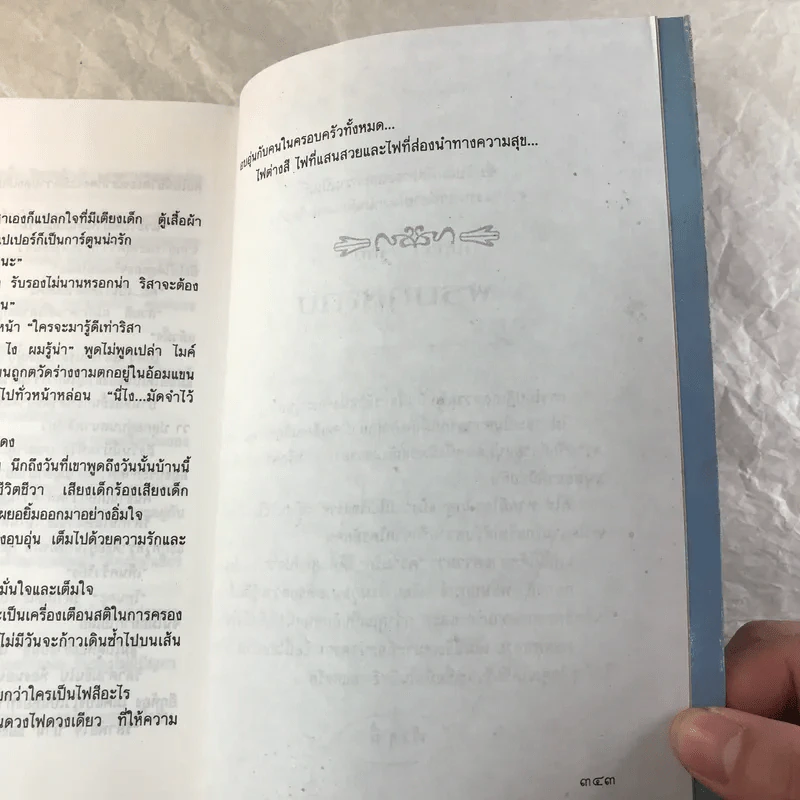 าเองก็แปลกใจที่มีเตียงเด็ก ตู้เสื้อผ้า
ปเปอร์ก็เป็นการ์ตูนน่ารัก
นะ”
รับรองไม่นานหรอกน่า ริสาจะต้อง
น”
หน้า “ใครจะมารู้ดีเท่าริสา
ไง ผมรู้น่า” พูดไม่พูดเปล่า ไมค์
นถูกตวัดร่างงามตกอยู่ในอ้อมแขน
ไปทั่วหน้าหล่อน “นี่ไง...มัดจำไว้
ดง
นึกถึงวันที่เขาพูดถึงวันนั้นบ้านนี้
ชีวิตชีวา เสียงเด็กร้องเสียงเด็ก
ผยอยิ้มออกมาอย่างอิ่มใจ
งอบอุ่น เต็มไปด้วยความรักและ
มั่นใจและเต็มใจ
ะเป็นเครื่องเตือนสติในการครอง
ไม่มีวันจะก้าวเดินซ้ำไปบนเส้น
บกว่าใครเป็นไฟสีอะไร
นดวงไฟดวงเดียว ที่ให้ความ
อบอุ่นกับคนในครอบครัวทั้งหมด...
ไฟต่างสี ไฟที่แสนสวยและไฟที่ส่องนำทางความสุข...
๓๔๓